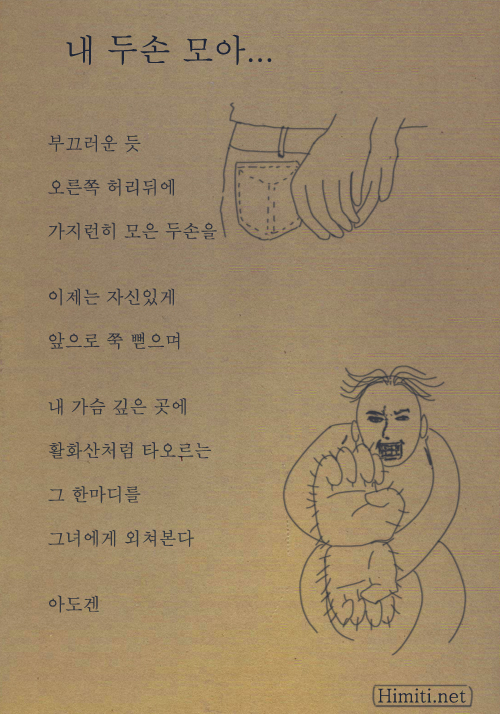 내 두손 모아...
부끄러운 듯
오른쪽 허리뒤에
가지런히 모은 두손을
이제는 자신있게
앞으로 쭉 뻗으며
내 가슴 깊은 곳에
활화산처럼 타오르는
그 한마디를
그녀에게 외쳐본다
아도겐
Himiti.net